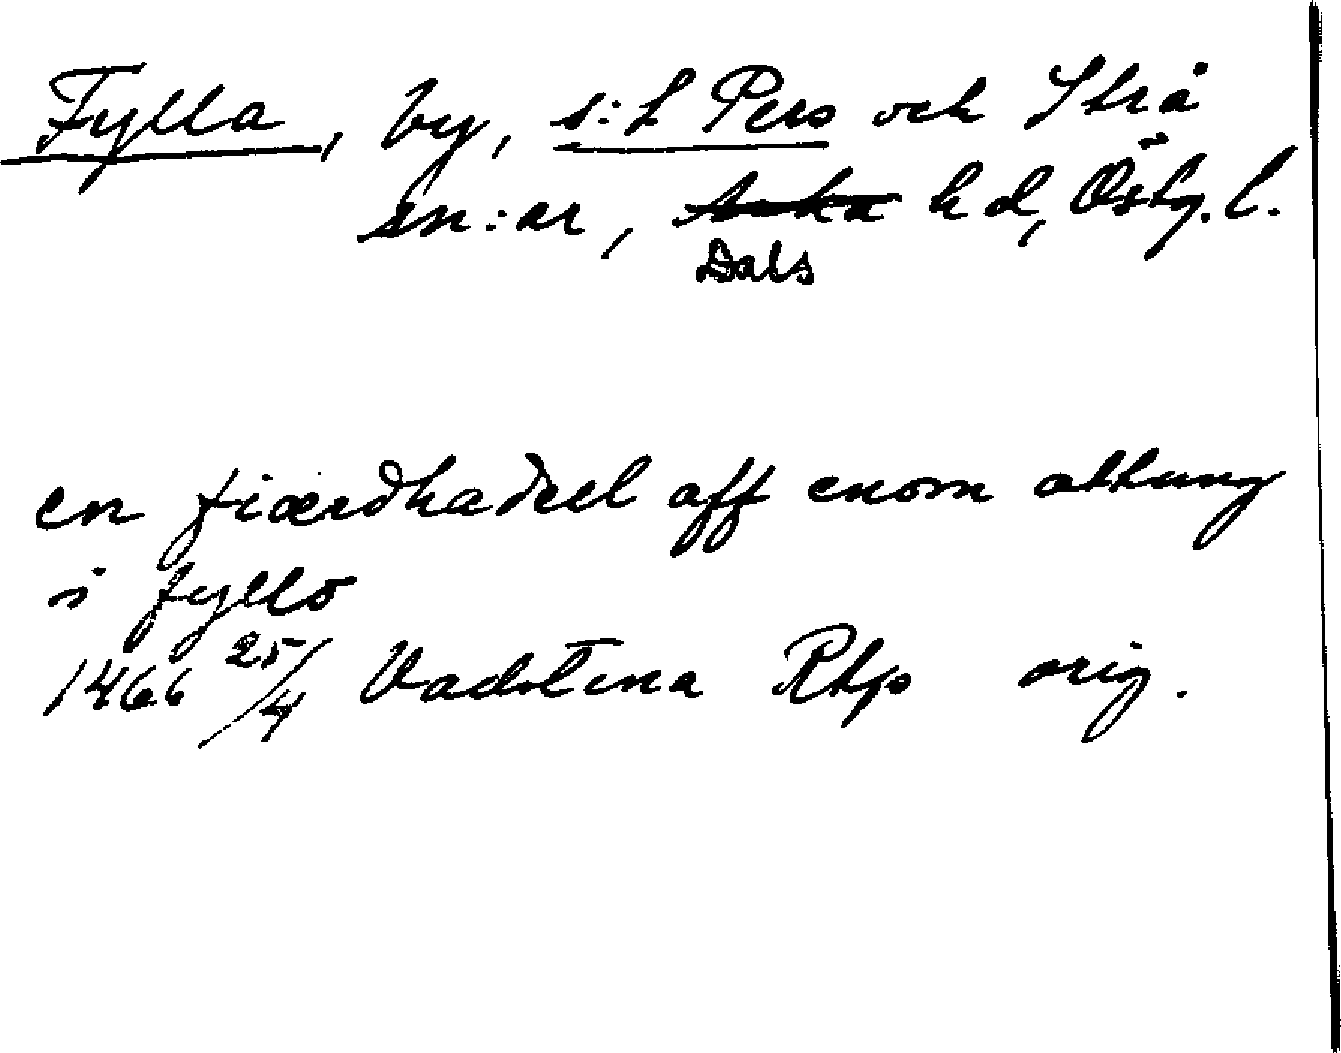 Fylla, by, s:t Pers och Strå
sn:ar, hd, Östg. l.
Dals
en fiærdhadeel aff enom attung
i fyllo
1466 25/4 Vadstena Rhp orig.